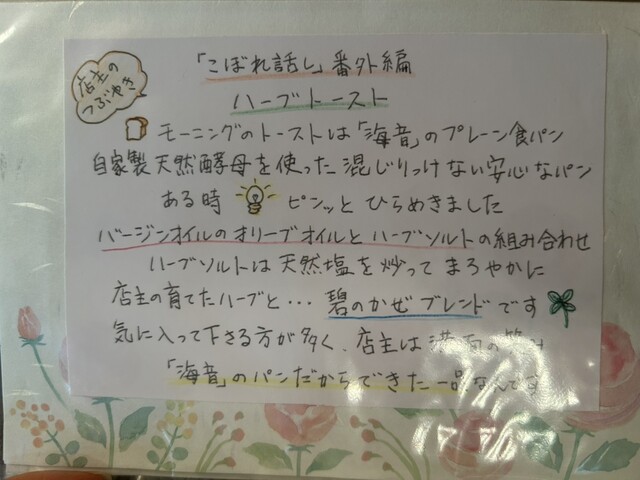 店主の
つぶやき
「こぼれ話し」番外編
ハーブトースト
モーニングのトーストは「海音」のプレーン食パン
自家製天然酵母を使った混じりっけない安心なパン
ある時 ピンッと ひらめきました
バージンオイルのオリーブオイルとハーブソルトの組み合わせ
ハーブソルトは天然塩を炒って まろやかに
店主の育てたハーブと… 碧のかぜブレンドです
気に入って下さる方が多く、店主は満面の笑み
「海音」のパンだからできた一品なんです